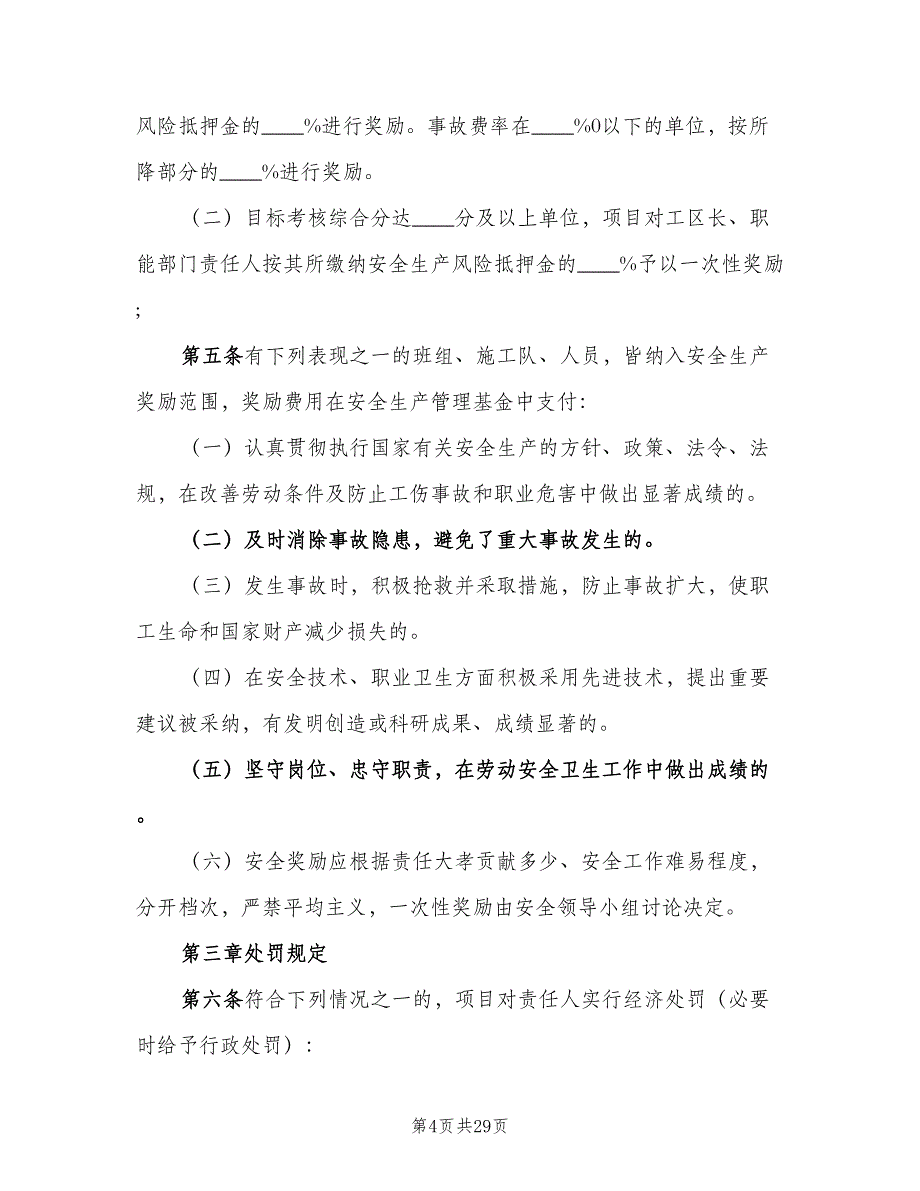 风险抵押金的____%进行奖励。事故费率在____%0以下的单位，按所
降部分的____%进行奖励。
（二）目标考核综合分达____分及以上单位，项目对工区长、职
能部门责任人按其所缴纳安全生产风险抵押金的____%予以一次性奖励
;
第五条有下列表现之一的班组、施工队、人员，皆纳入安全生产
奖励范围，奖励费用在安全生产管理基金中支付：
（一）认真贯彻执行国家有关安全生产的方针、政策、法令、法
规，在改善劳动条件及防止工伤事故和职业危害中做出显著成绩的。
（二）及时消除事故隐患，避免了重大事故发生的。
（三）发生事故时，积极抢救并采取措施，防止事故扩大，使职
工生命和国家财产减少损失的。
（四）在安全技术、职业卫生方面积极采用先进技术，提出重要
建议被采纳，有发明创造或科研成果、成绩显著的。
（五）坚守岗位、忠守职责，在劳动安全卫生工作中做出成绩的
。
（六）安全奖励应根据责任大孝贡献多少、安全工作难易程度，
分开档次，严禁平均主义，一次性奖励由安全领导小组讨论决定。
第三章处罚规定
第六条符合下列情况之一的，项目对责任人实行经济处罚（必要
时给予行政处罚）：
第4页共29页